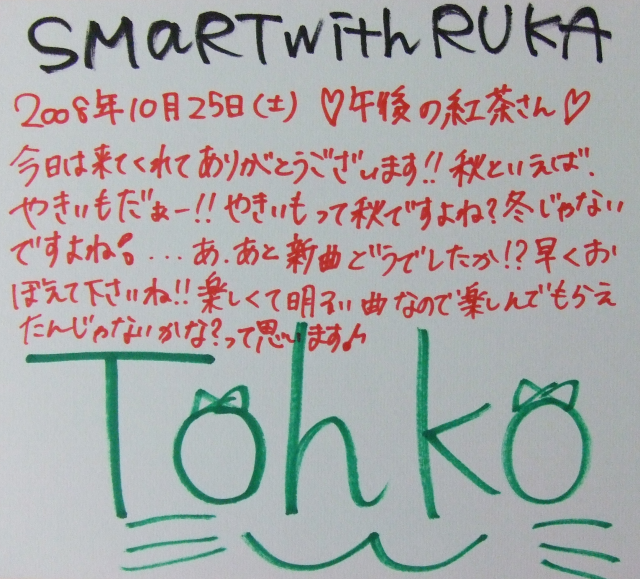 SMaRT with RUKA
2008年10月25日(土) ♡午後の紅茶さん♡
今日は来てくれてありがとうございます!! 秋といえば、
やきいもだぁー!! やきいもって秋ですよね?冬じゃない
ですよね。...あ、あと新曲どうでしたか!?早くお
ぼえて下さいね!!楽しくて明るい曲なので楽しんでもらえ
たんじゃないかな?って思います♪
Tohko